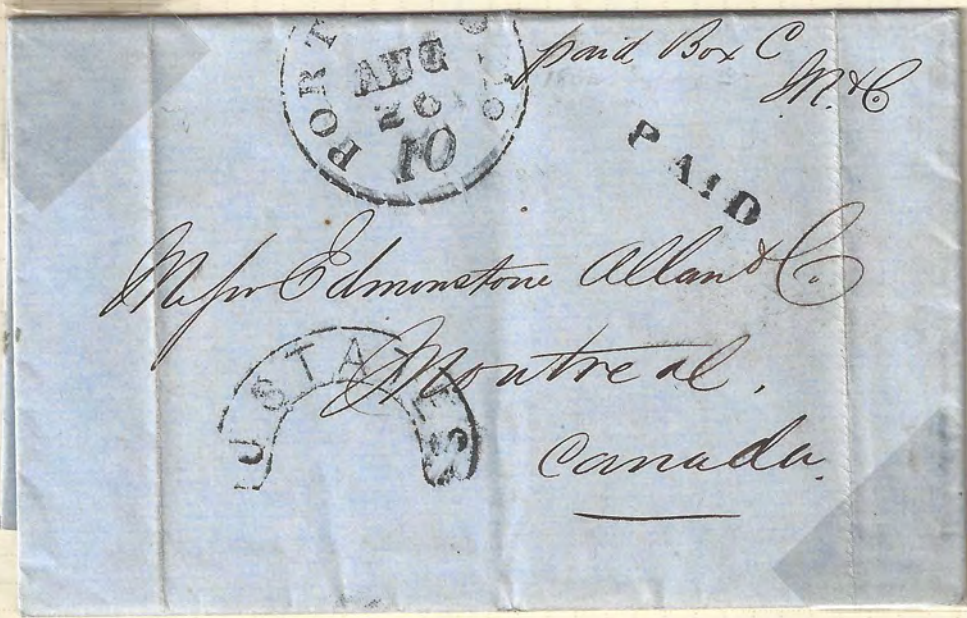 PORT
AUG
26
10
paid Box C
M. & C.
PAID
Messrs Edmonstone Allan & Co.
Montreal.
U STATES
Canada.